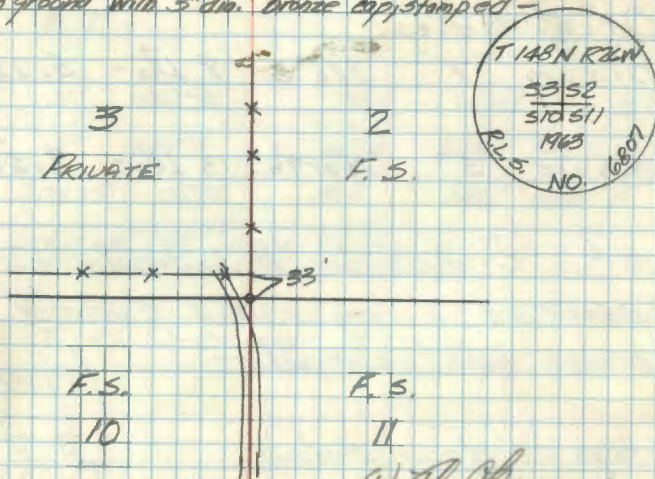 ground with 3" dia. bronze cap, stamped -
T 148 N R26W
S3 S2
S10 S11
1963
R.L.S. NO. 6807
3 2
PRIVATE F. S.
33'
F. S. F. S.
10 11